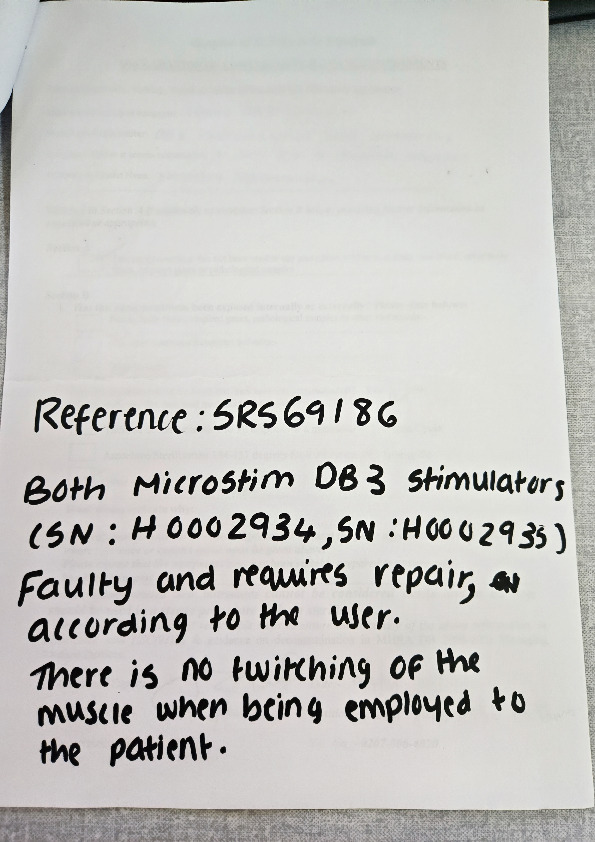 Reference: SRS69186
Both Microstim DB3 stimulators
(SN: H0002934, SN: H0002935)
Faulty and requires repair,
according to the user.
There is no twitching of the
muscle when being employed to
the patient.